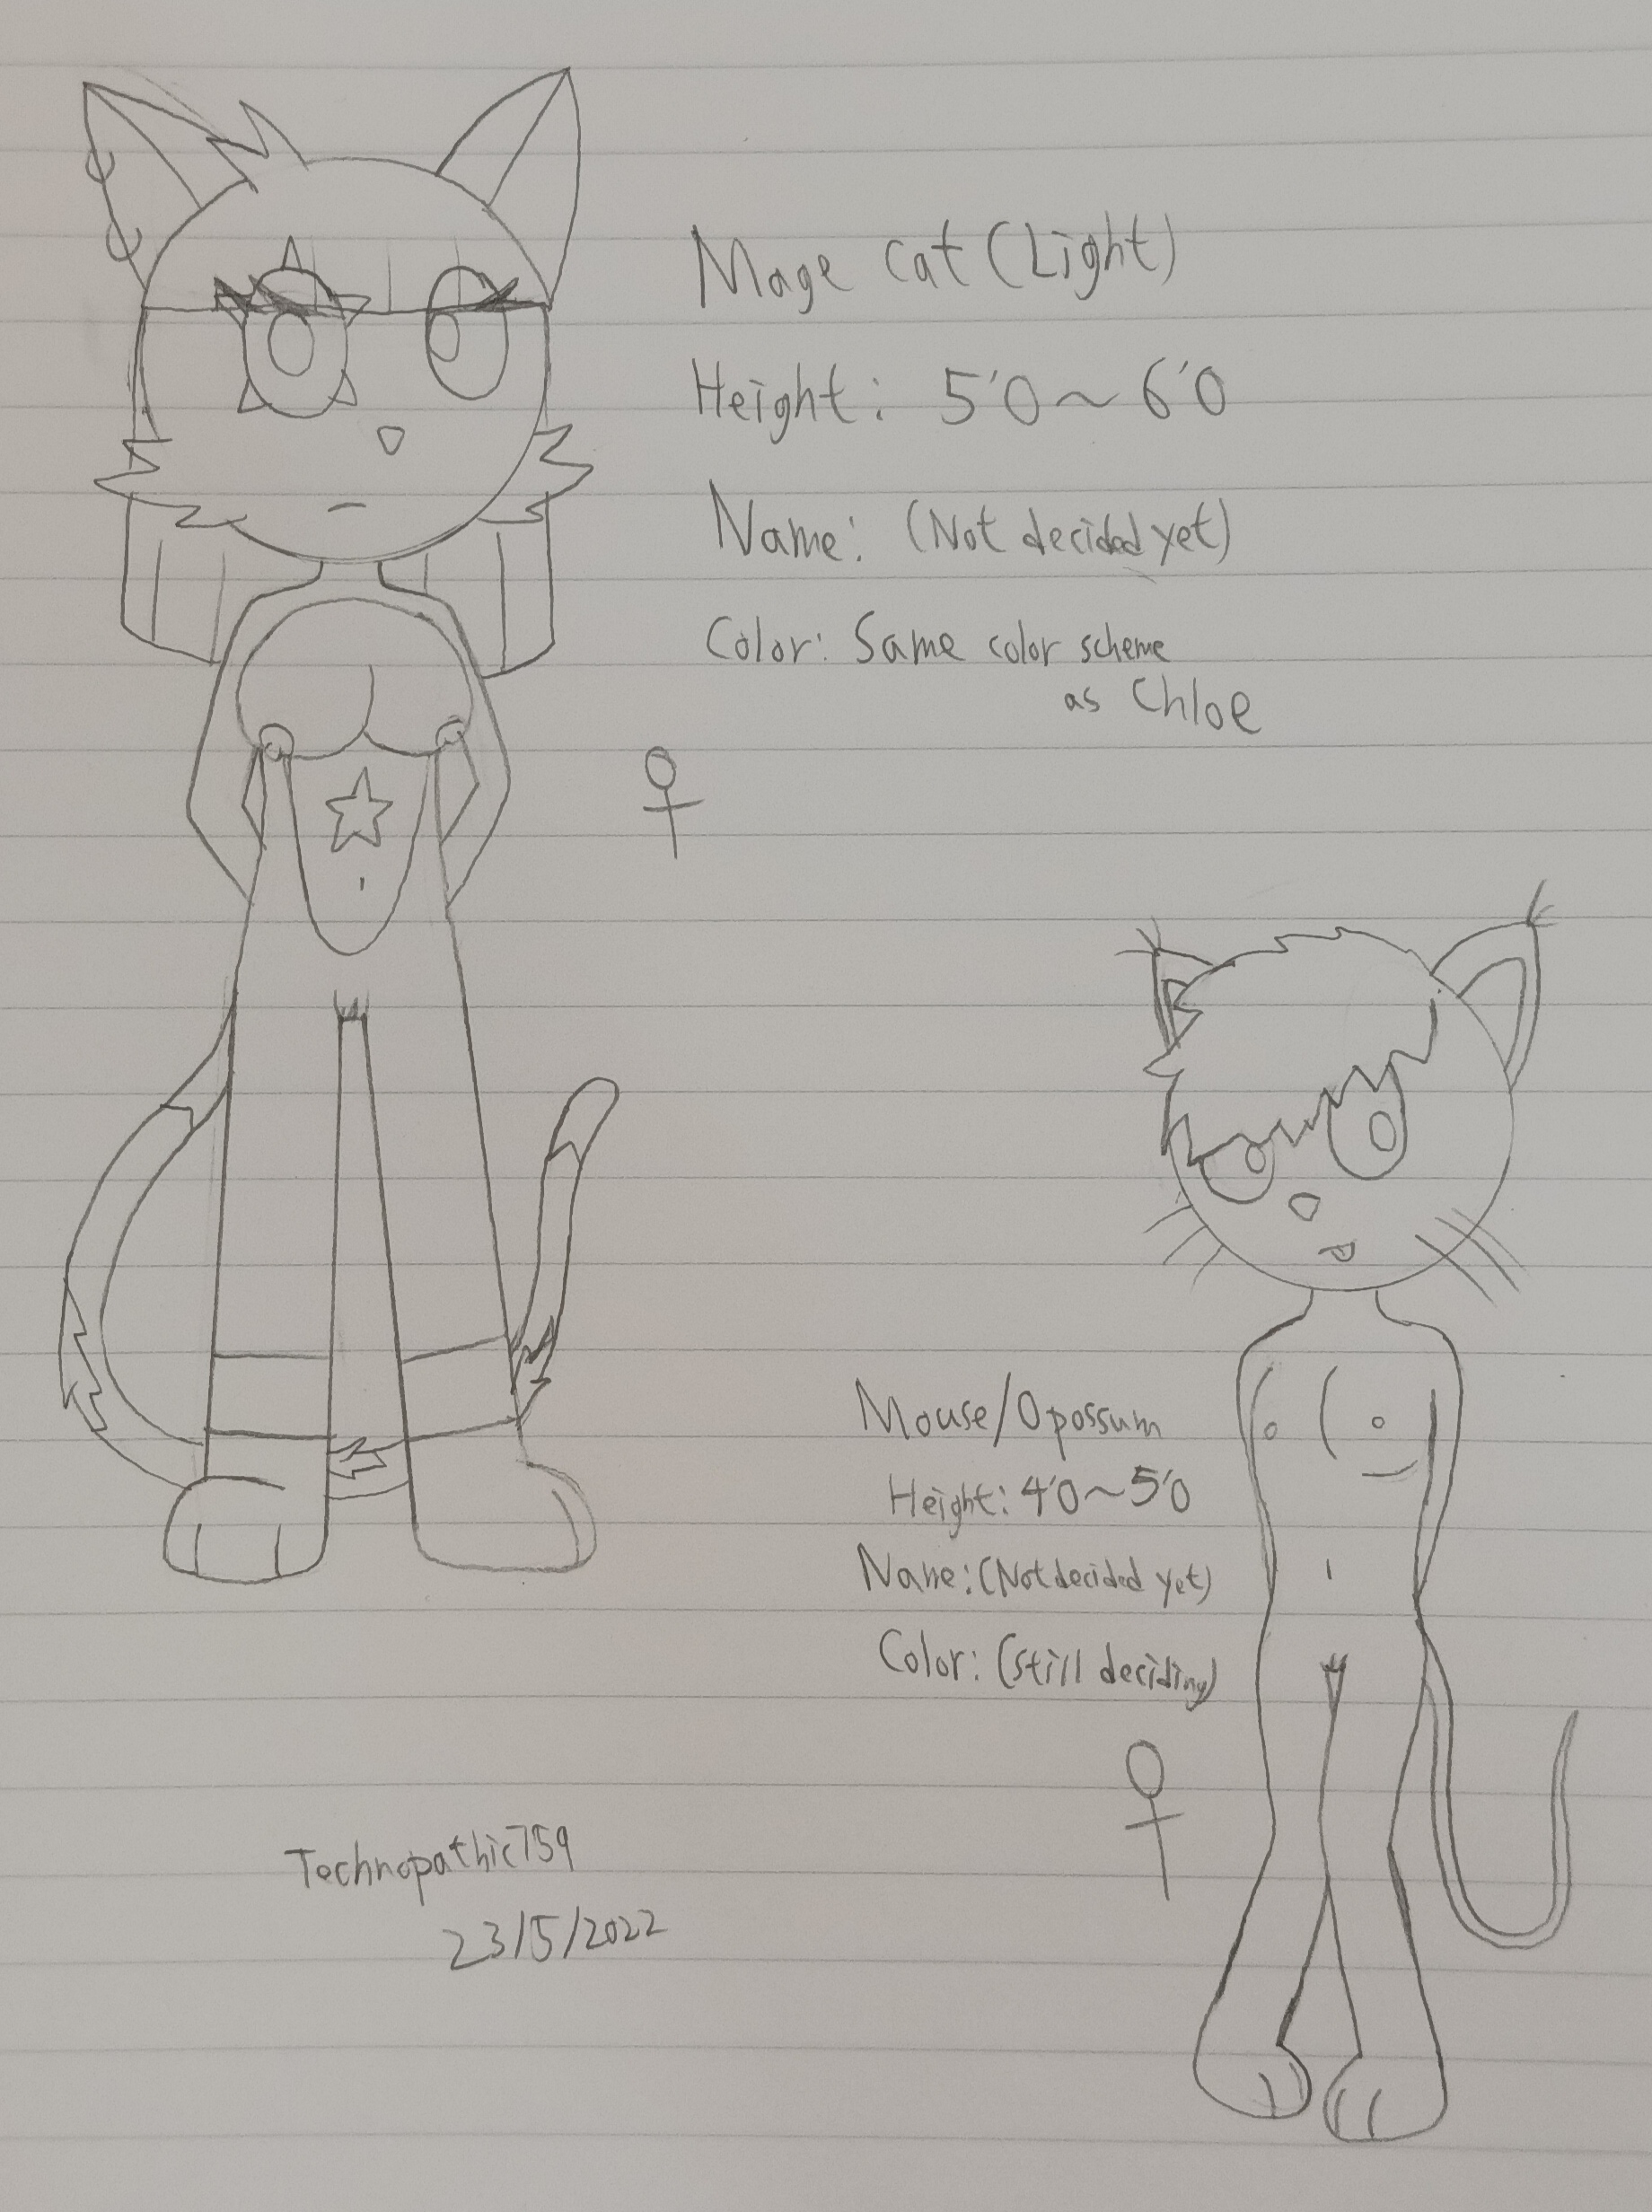 Mage Cat (Light)
Height: 5'0~6'0
Name: (Not decided yet)
Color: Same color scheme
as Chloe
♀
Mouse/Opossum
Height: 4'0~5'0
Name: (Not decided yet)
Color: (Still deciding)
♀
Technopathic759
23/5/2022